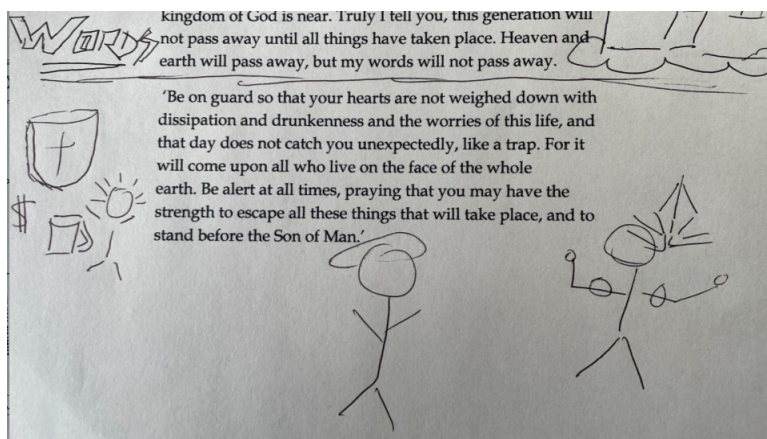 kingdom of God is near. Truly I tell you, this generation will
Words
not pass away until all things have taken place. Heaven and
earth will pass away, but my words will not pass away.
'Be on guard so that your hearts are not weighed down with
dissipation and drunkenness and the worries of this life, and
that day does not catch you unexpectedly, like a trap. For it
will come upon all who live on the face of the whole
earth. Be alert at all times, praying that you may have the
strength to escape all these things that will take place, and to
$
stand before the Son of Man.'